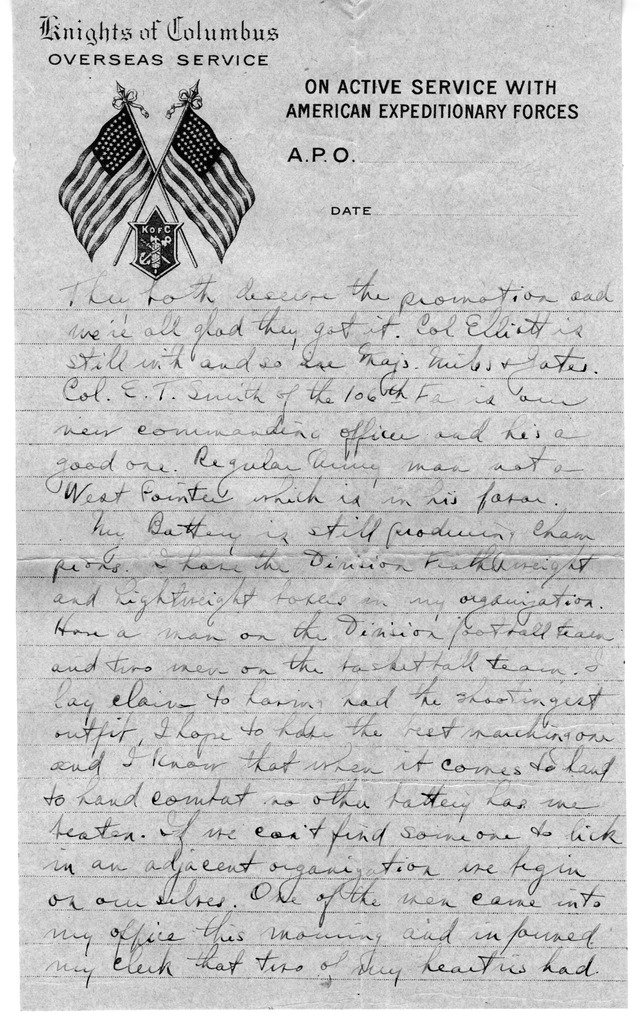 Knights of Columbus
OVERSEAS SERVICE
ON ACTIVE SERVICE WITH
AMERICAN EXPEDITIONARY FORCES
A.P.O.
DATE
K OF C
They both deserve the promotion and
we're all glad they got it. Col Elliott is
still with and so are Majs. Miles & Gates.
Col. E. T. Smith of the 106th Fa is our
new commanding officer and he's a
good one. Regular Army man not a
West Pointer which is in his favor.
My Battery is still producing cham
pions. I have the Division Featherweight
and Lightweight boxers in my organization.
Have a man on the Division football team
and two men on the basketball team. I
lay claim to having had the shootingest
outfit, I hope to have the best marching one
and I know that when it comes to hand
to hand combat no other battery has me
beaten. If we can't find someone to lick
in an adjacent organization we begin
on ourselves. One of the men came into
my office this morning and informed
my clerk that two of my had